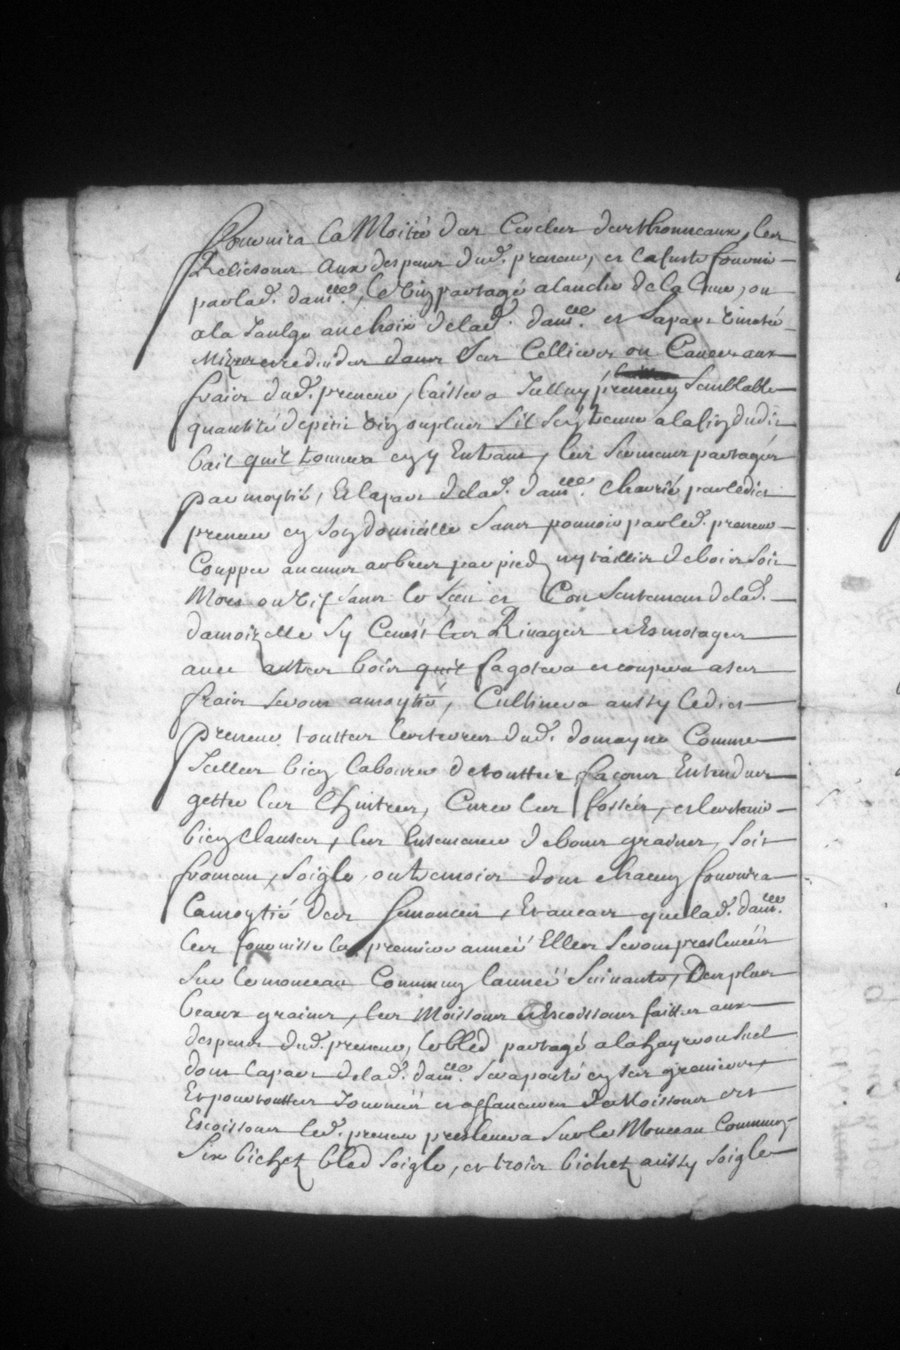 fournira la Moitié des Cercles des thonneaux, les
Relieson aux despens dud. preneur, et la futs fourni
par lad. damlle, le vin partagé a lanche de la Cuve, ou
a la Jaulge au choix de lad. damlle et sa part
dans ses Celliers ou Caves aux
fraix dud. preneur, laissera Icelluy preneur semblable
quantité de petit vin ou plus sil sen treuve a la fin dudit
bail quil trouvera en y Entrant, les seront partagés
par moytié, Et la part de lad. damlle charié par ledict
preneur en son domicille sans pouvoir par led. preneur
Couppe aucuns arbres par pied ny taillis de bois soit
Mort ou vif sans le sceu et Consentement de lad.
damoizelle sy Ce nest les Rivages et Esmotages
avec autres bois quil fagotera et coupera a ses
fraix seront a moytié, Cultivera aussy ledict
preneur touttes les terres dud. domayne Comme
Icelles bien laboure de touttes façons Entendues
gette les Chintres, Cure les fossés, et les tenir
bien clauses, les Ensemence de bons graines, soit
froment, soigle, ou tremois dont chacun fournira
la moytié des semances, Et au cas que lad. damlle
les fournisse la premiere année Elles seront preslevées
sur le monceau Commung lannée suivante, Des plus
beaux graines, les Moissons et Escoissons faittes aux
despens dud. preneur, le bled partagé a la
dont la part de lad. damlle sera porté en ses greniers,
Et pour touttes Journées et affanures de Moissons et
Escoissons led. preneur preslevera sur le Monceau Commung
Six bichet bled soigle, et trois bichet aussy soigle